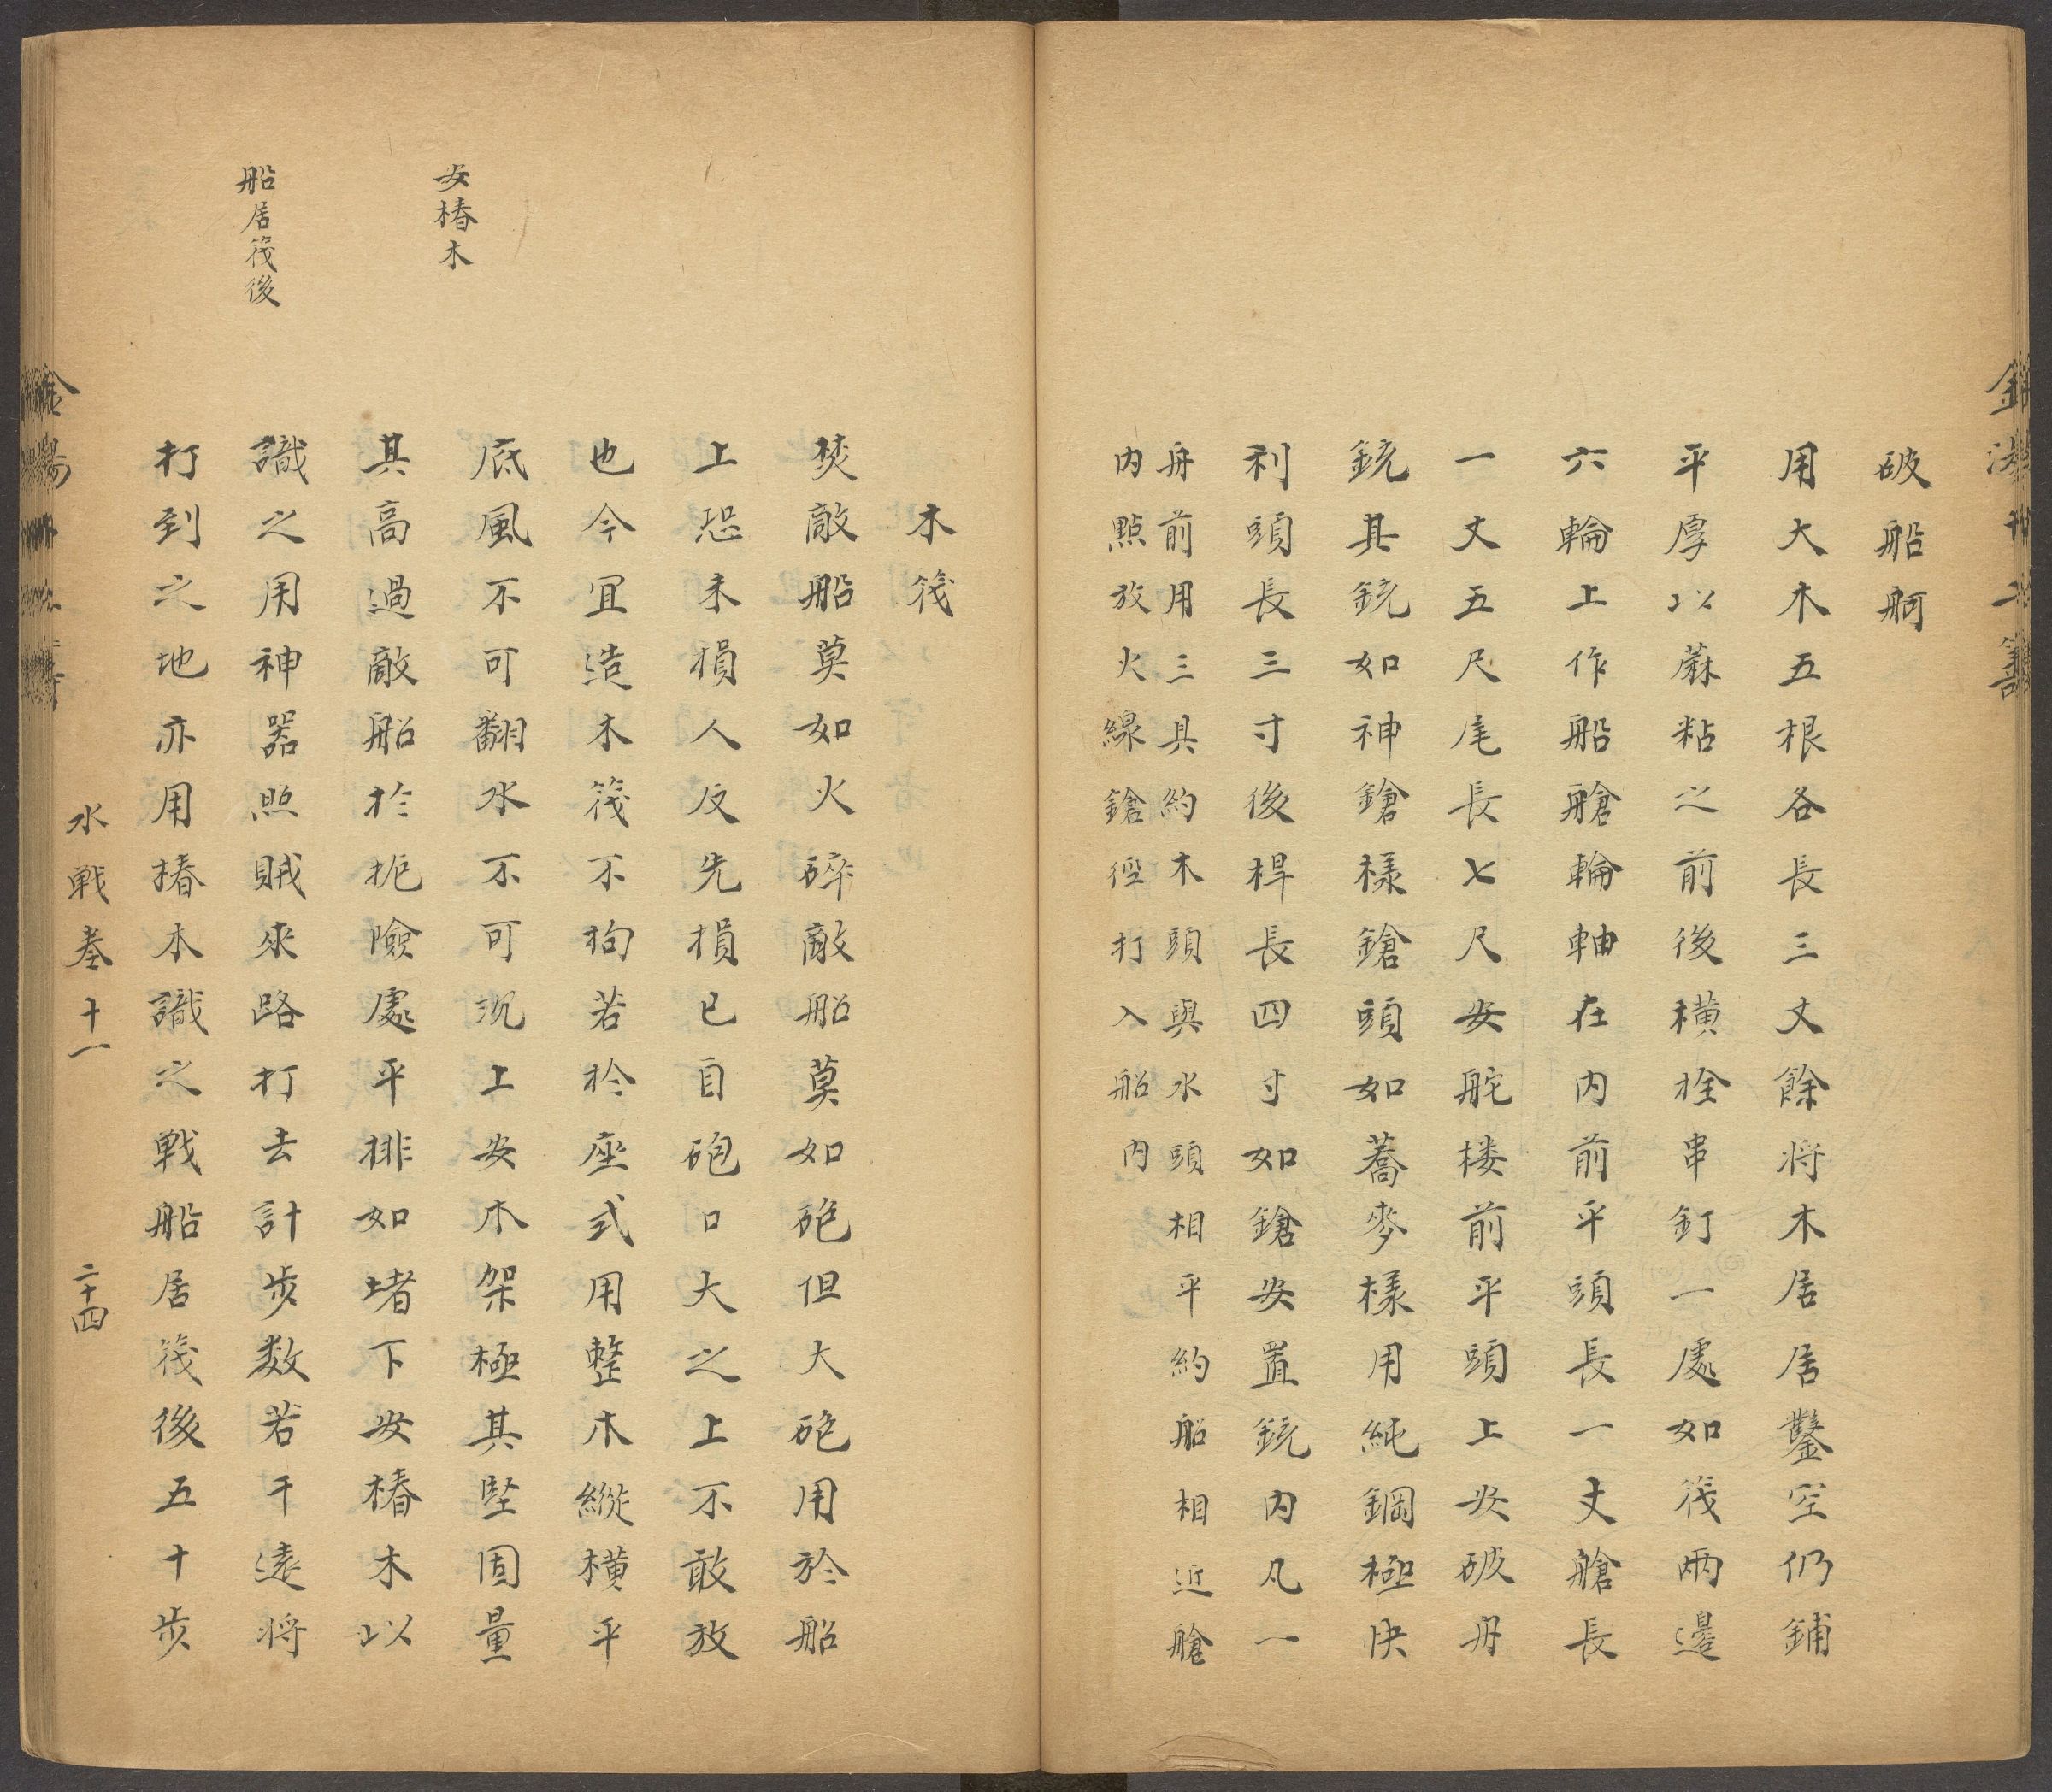 破船舸
用大木五根各長三丈餘将木居居鑿空仍鋪
平厚以蔴粘之前後橫拴串釘一處如筏兩邊
六輪上作船艙輪軸在内前平頭長一丈艙長
一丈五尺尾長七尺安舵楼前平頭上安破舟
銃其銃如神鎗樣鎗頭如蕎麥樣用純鋼極快
利頭長三寸後桿長四寸如鎗安置銃内凡一
舟前用三具約木頭與水頭相平約船相近艙
内點放火線鎗徑打入船内
木筏
焚敵船莫如火碎敵船莫如砲但大砲用於船
上恐未損人反先損已自砲口大之上不敢放
也今宜造木筏不拘若於座式用整木縱橫平
底風不可翻水不可沉上安木架極其堅固量
安樁木
其高過敵船於扼險處平排如堵下安樁木以
船居筏後
識之用神器照賊來路打去計步数若干遠将
打到之地亦用樁木識之戰船居筏後五十步
水戰卷十一
二十四